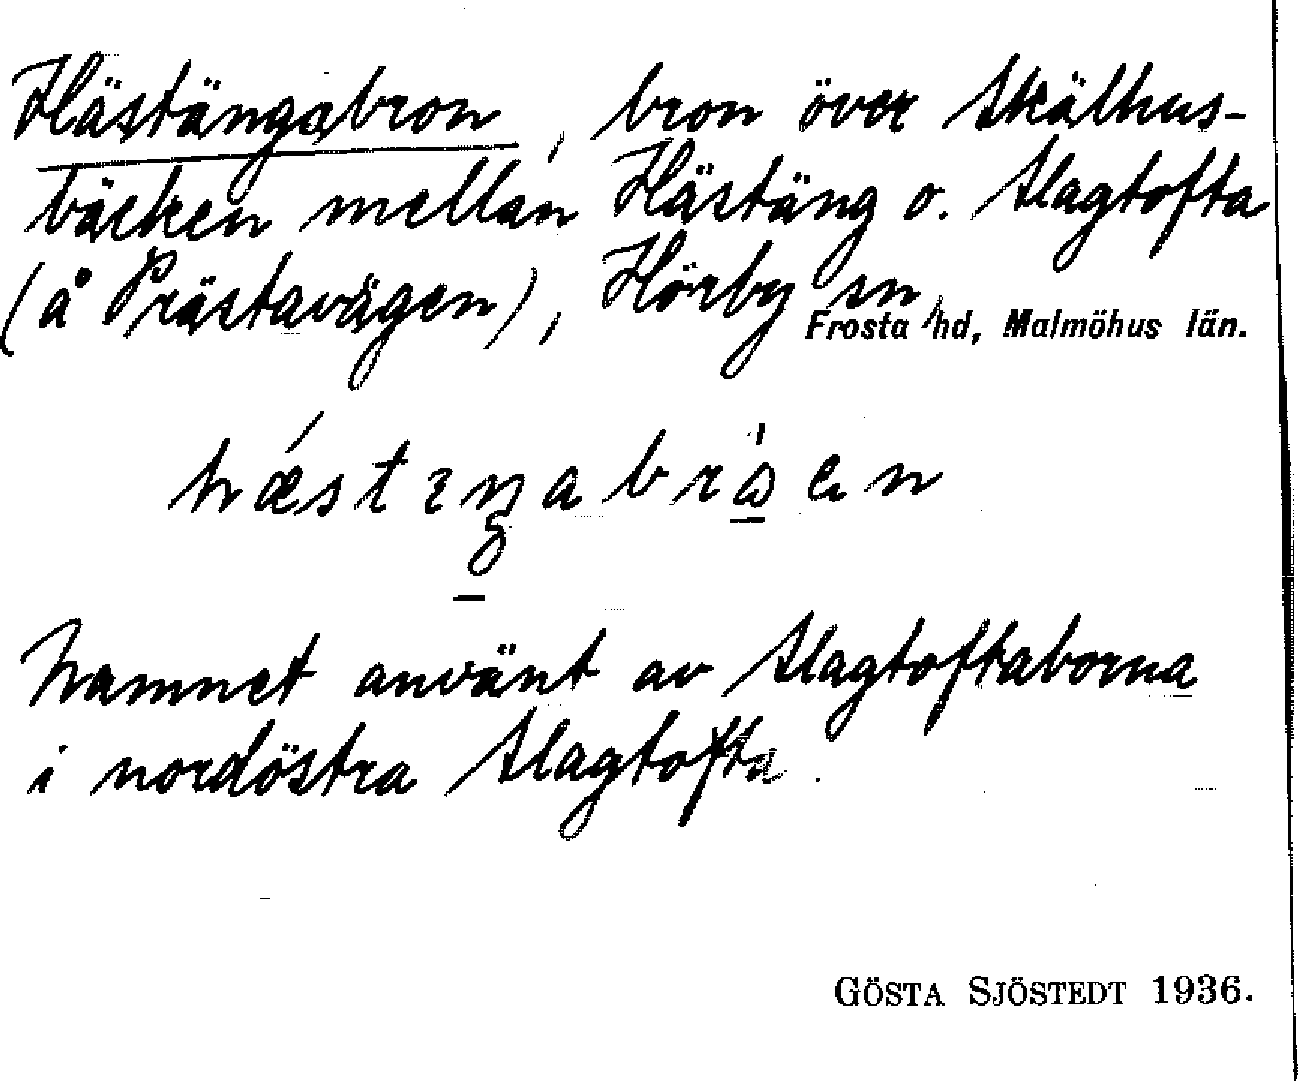 Hästängabron, bron över Skälhus-
bäcken mellan Hästäng o. Slagtofta
(å Prästavägen), Hörby sn,
Frosta hd, Malmöhus län.
Namnet använt av Slagtoftaborna
i nordöstra Slagtofta.
GÖSTA SJÖSTEDT 1936.